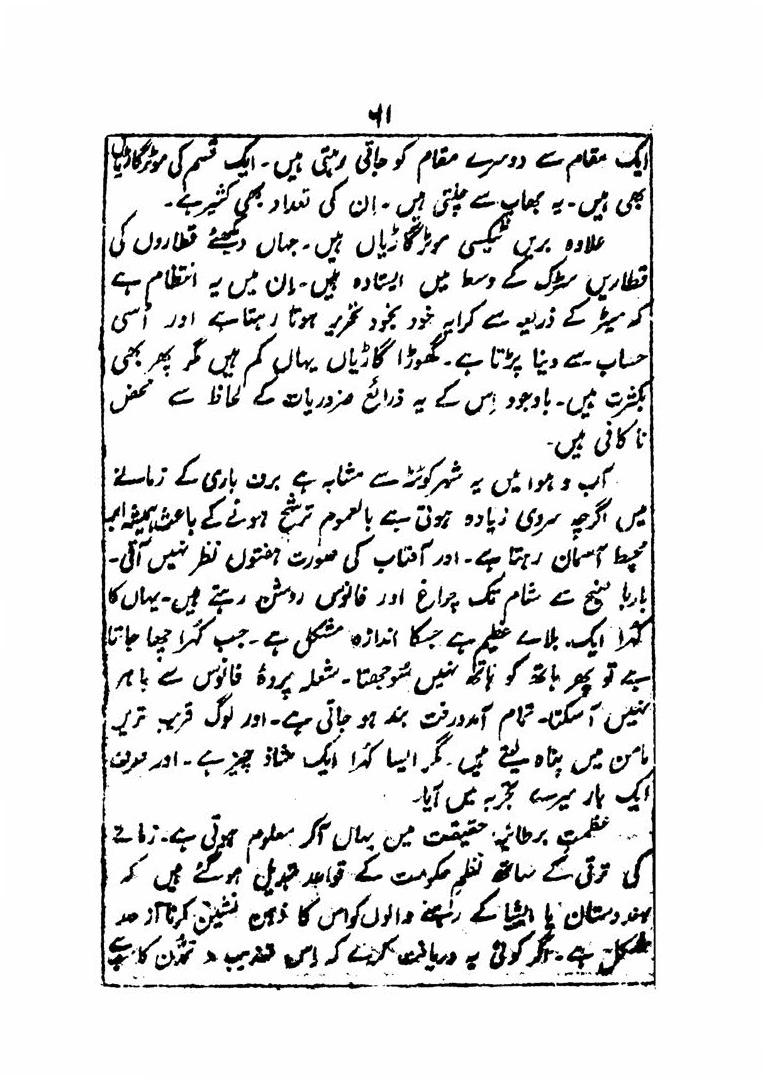 ۶۱
ایک مقام سے دوسرے مقام کو جاتی رہتی ہیں۔ ایک قسم کی موٹر گاڑیاں
بھی ہیں۔ یہ بھاپ سے چلتی ہیں۔ اِن کی تعداد بھی کثیر ہے۔
علاوہ بریں ٹیکسی موٹر گاڑیاں ہیں۔ جہاں دیکھئے قطاروں کی
قطاریں سڑک کے وسط میں ایستادہ ہیں۔ اِن میں یہ انتظام ہے
کہ میٹر کے ذریعہ سے کرایہ خود بخود تحریر ہوتا رہتا ہے اور اُسی
حساب سے دینا پڑتا ہے۔ گھوڑا گاڑیاں یہاں کم ہیں مگر پھر بھی
بکثرت ہیں۔ باوجود اِس کے یہ ذرائع ضروریات کے لحاظ سے محض
ناکافی ہیں۔
آب و ہوا میں یہ شہر کوئٹہ سے مشابہ ہے برف باری کے زمانے
میں اگرچہ سردی زیادہ ہوتی ہے بالعموم ترشح ہونے کے باعث ہمیشہ ابر
محیط آسمان رہتا ہے۔ اور آفتاب کی صورت ہفتوں نظر نہیں آتی۔
بارہا صبح سے شام تک چراغ اور فانوس روشن رہتے ہیں۔ یہاں کا
کُہرا ایک بلاے عظیم ہے جسکا اندازہ مشکل ہے۔ جب کُہرا چھا جاتا
ہے تو پھر ہاتھ کو ہاتھ نہیں سُوجھتا۔ شعلہ پردۂ فانوس سے باہر
نہیں آسکتا۔ تمام آمدورفت بند ہو جاتی ہے۔ اور لوگ قریب ترین
مامن میں پناہ لیتے ہیں۔ مگر ایسا کہرا ایک شاذ چیز ہے۔ اور صرف
ایک بار میرے تجربہ میں آیا۔
عظمتِ برطانیہ حقیقت میں یہاں آکر معلوم ہوتی ہے۔ زمانے
کی ترقی کے ساتھ نظمِ حکومت کے قواعد تبدیل ہوگئے ہیں کہ
ہندوستان یا ایشیا کے رہنے والوں کو اس کا ذہن نشین کرنا از حد
مشکل ہے۔ اگر کوئی یہ دریافت کرے کہ اِس تہذیب و تمدّن کا